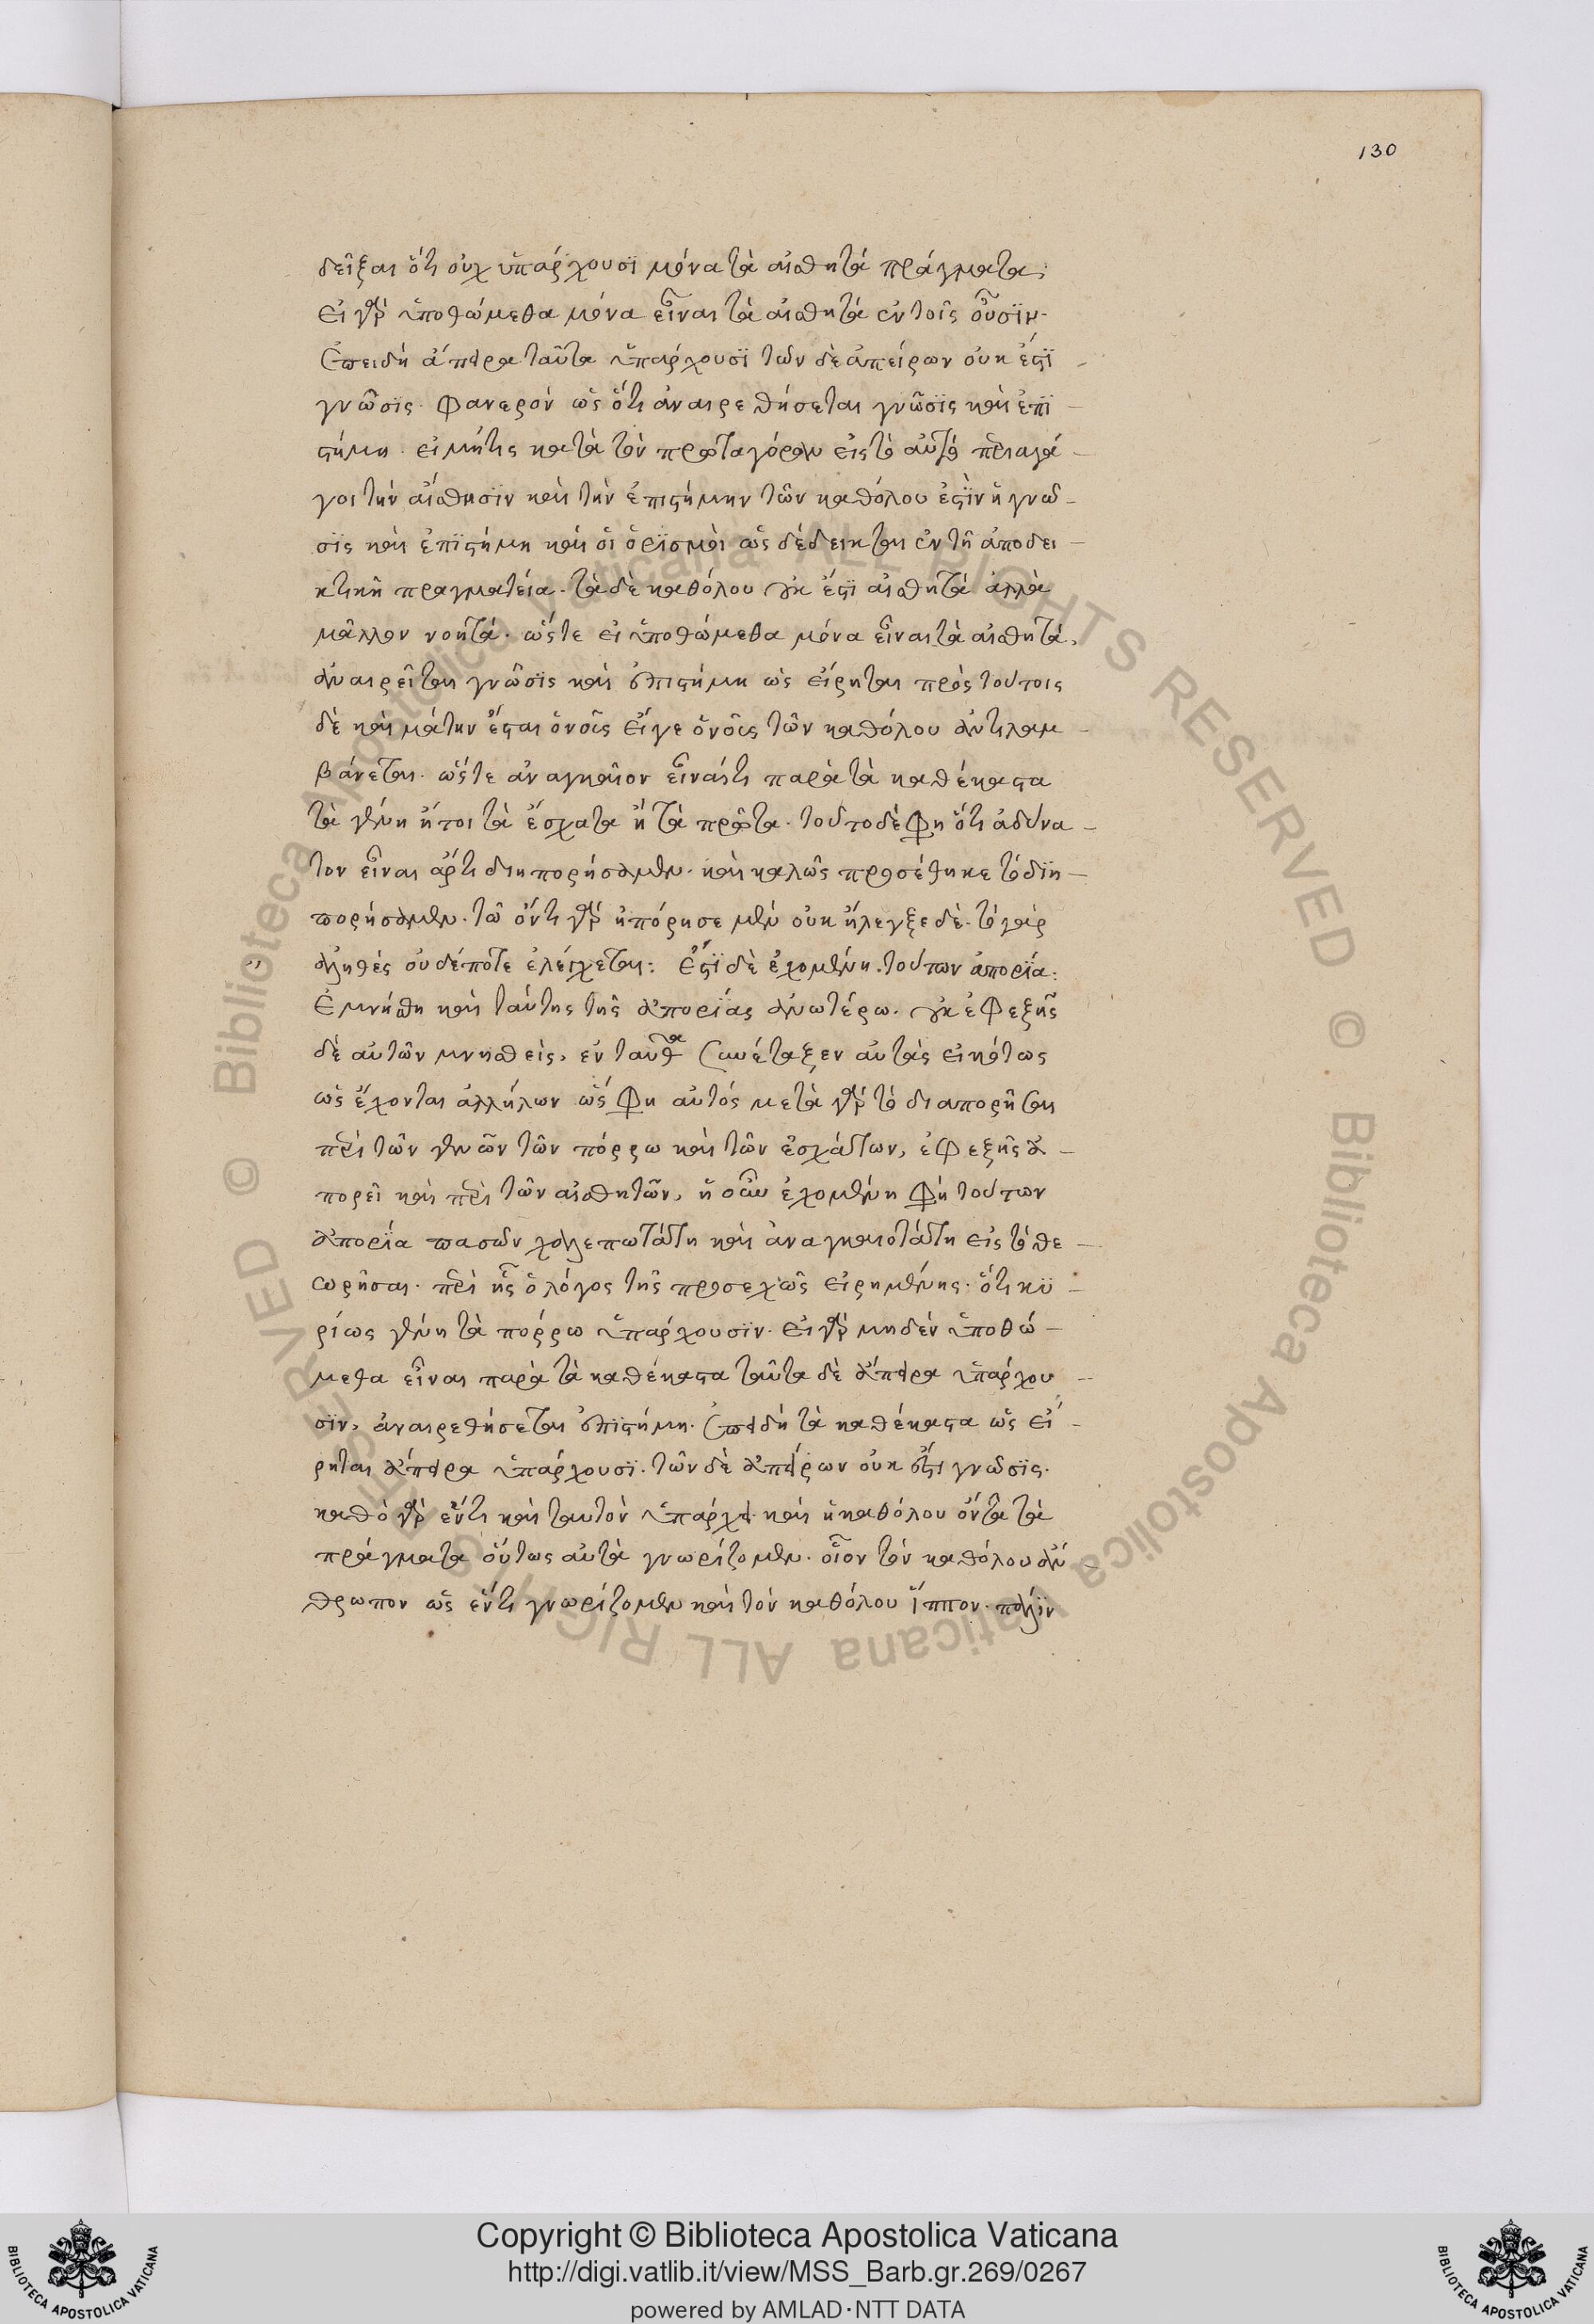 130
δεῖξαι ὅτι οὐχ ὑπάρχουσϊ μόνα τὰ αἰσθητὰ πράγματα·
εἰ γὰρ ὑποθώμεθα μόνα εἶναι τὰ αἰσθητὰ ἐν τοῖς οὖσϊν·
ἐπειδὴ ἄπειρα ταῦτα ὑπάρχουσϊ τῶν δὲ ἀπείρων οὐκ ἔστϊ
γνῶσϊς· φανερὸν ὡς ὅτι ἀναιρεθήσεται γνῶσϊς καὶ ἐπϊ
στήμη· εἰ μήτις κατὰ τὸν πρωταγόραν εἰς τὸ αὐτὸ περιαγά
γοι τὴν αἴσθησϊν καὶ τὴν ἐπιστήμην τῶν καθόλου ἐστϊν ἡ γνῶ
σϊς καὶ ἐπϊστήμη καὶ οἱ ὁρϊσμοὶ ὡς δέδεικται ἐν τῇ ἀποδει
κτικῇ πραγματεία· τὰ δὲ καθόλου οὐκ ἔστϊ αἰσθητὰ ἀλλὰ
μᾶλλον νοητά· ὥστε εἰ ὑποθώμεθα μόνα εἶναι τὰ αἰσθητὰ,
ἀναιρεῖται γνῶσϊς καὶ ἐπιστήμη ὡς εἴρηται πρὸς τούτοις
δὲ καὶ μάτην ἔσται ὁ νοῦς εἴγε ὁ νοῦς τῶν καθόλου ἀντιλαμ
βάνεται· ὥστε ἀναγκαῖον εἶναί τι παρὰ τὰ καθέκαστα
τὰ γένη ἤτοι τὰ ἔσχατα ἢ τὰ πρῶτα· τοῦτο δέ φη ὅτι ἀδύνα
τον εἶναι ἄρτι διηπορήσαμεν· καὶ καλῶς προσέθηκε τὸ δϊη
πορήσαμεν· τῷ ὄντι γὰρ ἠπόρησε μὲν οὐκ ἤλεγξε δέ· τὸ γὰρ
ἀληθὲς οὐδέποτε ἐλέγχεται: Ἔστϊ δὲ ἐχομένη τούτων ἀπορϊα:
Ἐμνήσθη καὶ ταύτης τῆς ἀπορϊας ἀνωτέρω· οὐκ ἐφεξῆς
δὲ αὐτῶν μνησθεὶς, ἐνταῦθα συνέταξεν αὐτὰς εἰκότως
ὡς ἔχονται ἀλλήλων ὥς φη αὐτός μετὰ γὰρ τὸ διαπορῆσαι
περὶ τῶν γενῶν τῶν πόρρω καὶ τῶν ἐσχάτων, ἐφεξῆς ἀ
πορεῖ καὶ περὶ τῶν αἰσθητῶν, ἡ οὖν ἐχομένη φὴ τούτων
ἀπορϊα πασῶν χαλεπωτάτη καὶ ἀναγκαιοτάτη εἰς τὸ θε
ωρῆσαι· περὶ ἧς ὁ λόγος τῆς προσεχῶς εἰρημένης· ὅτι κϋ
ρίως γένη τὰ πόρρω ὑπάρχουσϊν· εἰ γὰρ μηδὲν ὑποθώ
μεθα εἶναι παρὰ τὰ καθέκαστα ταῦτα δὲ ἄπειρα ὑπάρχου
σϊν, ἀναιρεθήσεται ἐπϊστήμη· ἐπειδὴ τὰ καθέκαστα ὡς εἴ
ρηται ἄπειρα ὑπάρχουσϊ· τῶν δὲ ἀπείρων οὐκ ἔστι γνῶσϊς·
καθὸ γὰρ ἕν τι καὶ ταυτὸν ὑπάρχει καὶ ἡ καθόλου ὄντα τὰ
πράγματα οὕτως αὐτὰ γνωρίζομεν· οἷον τὸν καθόλου ἄν
θρωπον ὡς ἕν τι γνωρίζομεν καὶ τὸν καθόλου ἵππον· πάλϊν
Copyright © Biblioteca Apostolica Vaticana
http://digi.vatlib.it/view/MSS_Barb.gr.269/0267
powered by AMLAD·NTT DATA